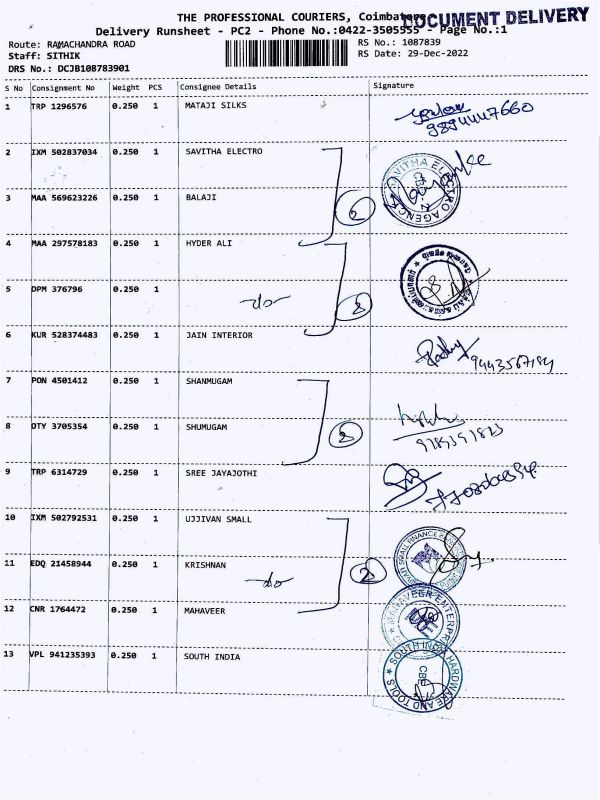 THE PROFESSIONAL COURIERS, Coimbatore
DOCUMENT DELIVERY
Delivery Runsheet - PC2 - Phone No.:0422-3505555 - Page No.:1
Route: RAMACHANDRA ROAD
RS No.: 1087839
Staff: SITHIK
RS Date: 29-Dec-2022
DRS No.: DCJB108783901
S No Consignment No Weight PCS Consignee Details Signature
1 TRP 1296576 0.250 1 MATAJI SILKS
9894447660
2 IXM 502837034 0.250 1 SAVITHA ELECTRO
SAVITHA ELECTRO AGENCY
3 MAA 569623226 0.250 1 BALAJI
2
4 MAA 297578183 0.250 1 HYDER ALI
5 DPM 376796 0.250 1
do
6 KUR 528374483 0.250 1 JAIN INTERIOR
7 PON 4501412 0.250 1 SHANMUGAM
8 OTY 3705354 0.250 1 SHUMUGAM
9 TRP 6314729 0.250 1 SREE JAYAJOTHI
10 IXM 502792531 0.250 1 UJJIVAN SMALL
11 EDQ 21458944 0.250 1 KRISHNAN
do
2
12 CNR 1764472 0.250 1 MAHAVEER
MAHAVEER ENTERPR
13 VPL 941235393 0.250 1 SOUTH INDIA
SOUTH INDIA HARDWARE AND TOOLS
CBE